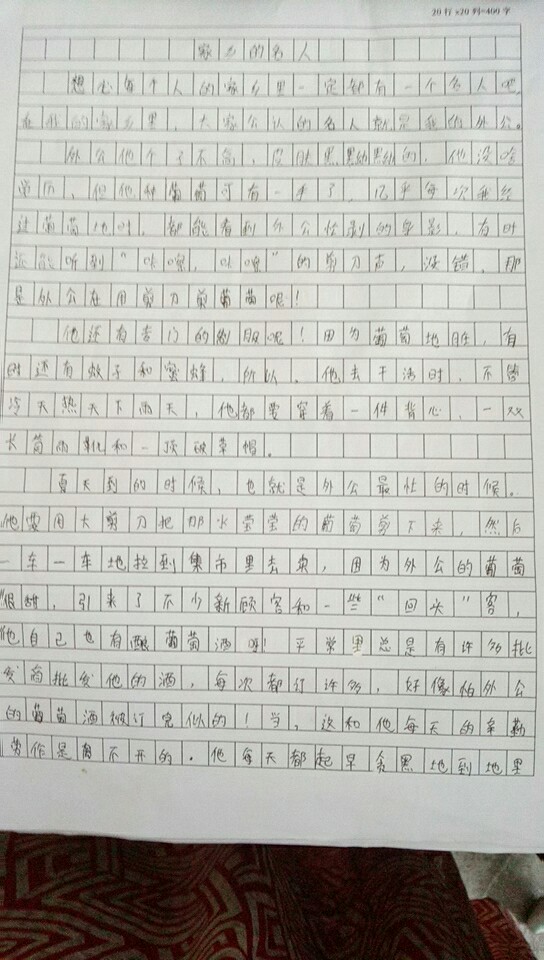 20行×20列=400字
家乡的名人
想必每个人的家乡里一定都有一个名人吧,
在我的家乡里,大家公认的名人就是我的外公。
外公他个子不高,皮肤黑黝黝的,他没啥
学历,但他种葡萄可有一手了,几乎每次我经
过葡萄地时,都能看到外公忙剪的身影,有时
还能听到“咔嚓,咔嚓”的剪刀声,没错,那
是外公在用剪刀剪葡萄呢!
他还有专门的制服呢!因为葡萄地脏,有
时还有蚊子和蜜蜂,所以,他去干活时,不管
冷天热天下雨天,他都要穿着一件背心,一双
长筒雨靴和一顶破草帽。
夏天到的时候,也就是外公最忙的时候。
他要用大剪刀把那水莹莹的葡萄剪下来,然后
一车一车地拉到集市里去卖,因为外公的葡萄
很甜,引来了不少新顾客和一些“回头”客,
他自己也有酿葡萄酒呀!平常里总是有许多批
发商批发他的酒,每次都订许多,好像怕外公
的葡萄酒被订完似的!当,这和他每天的辛勤
劳作是离不开的。他每天都起早贪黑地到地里